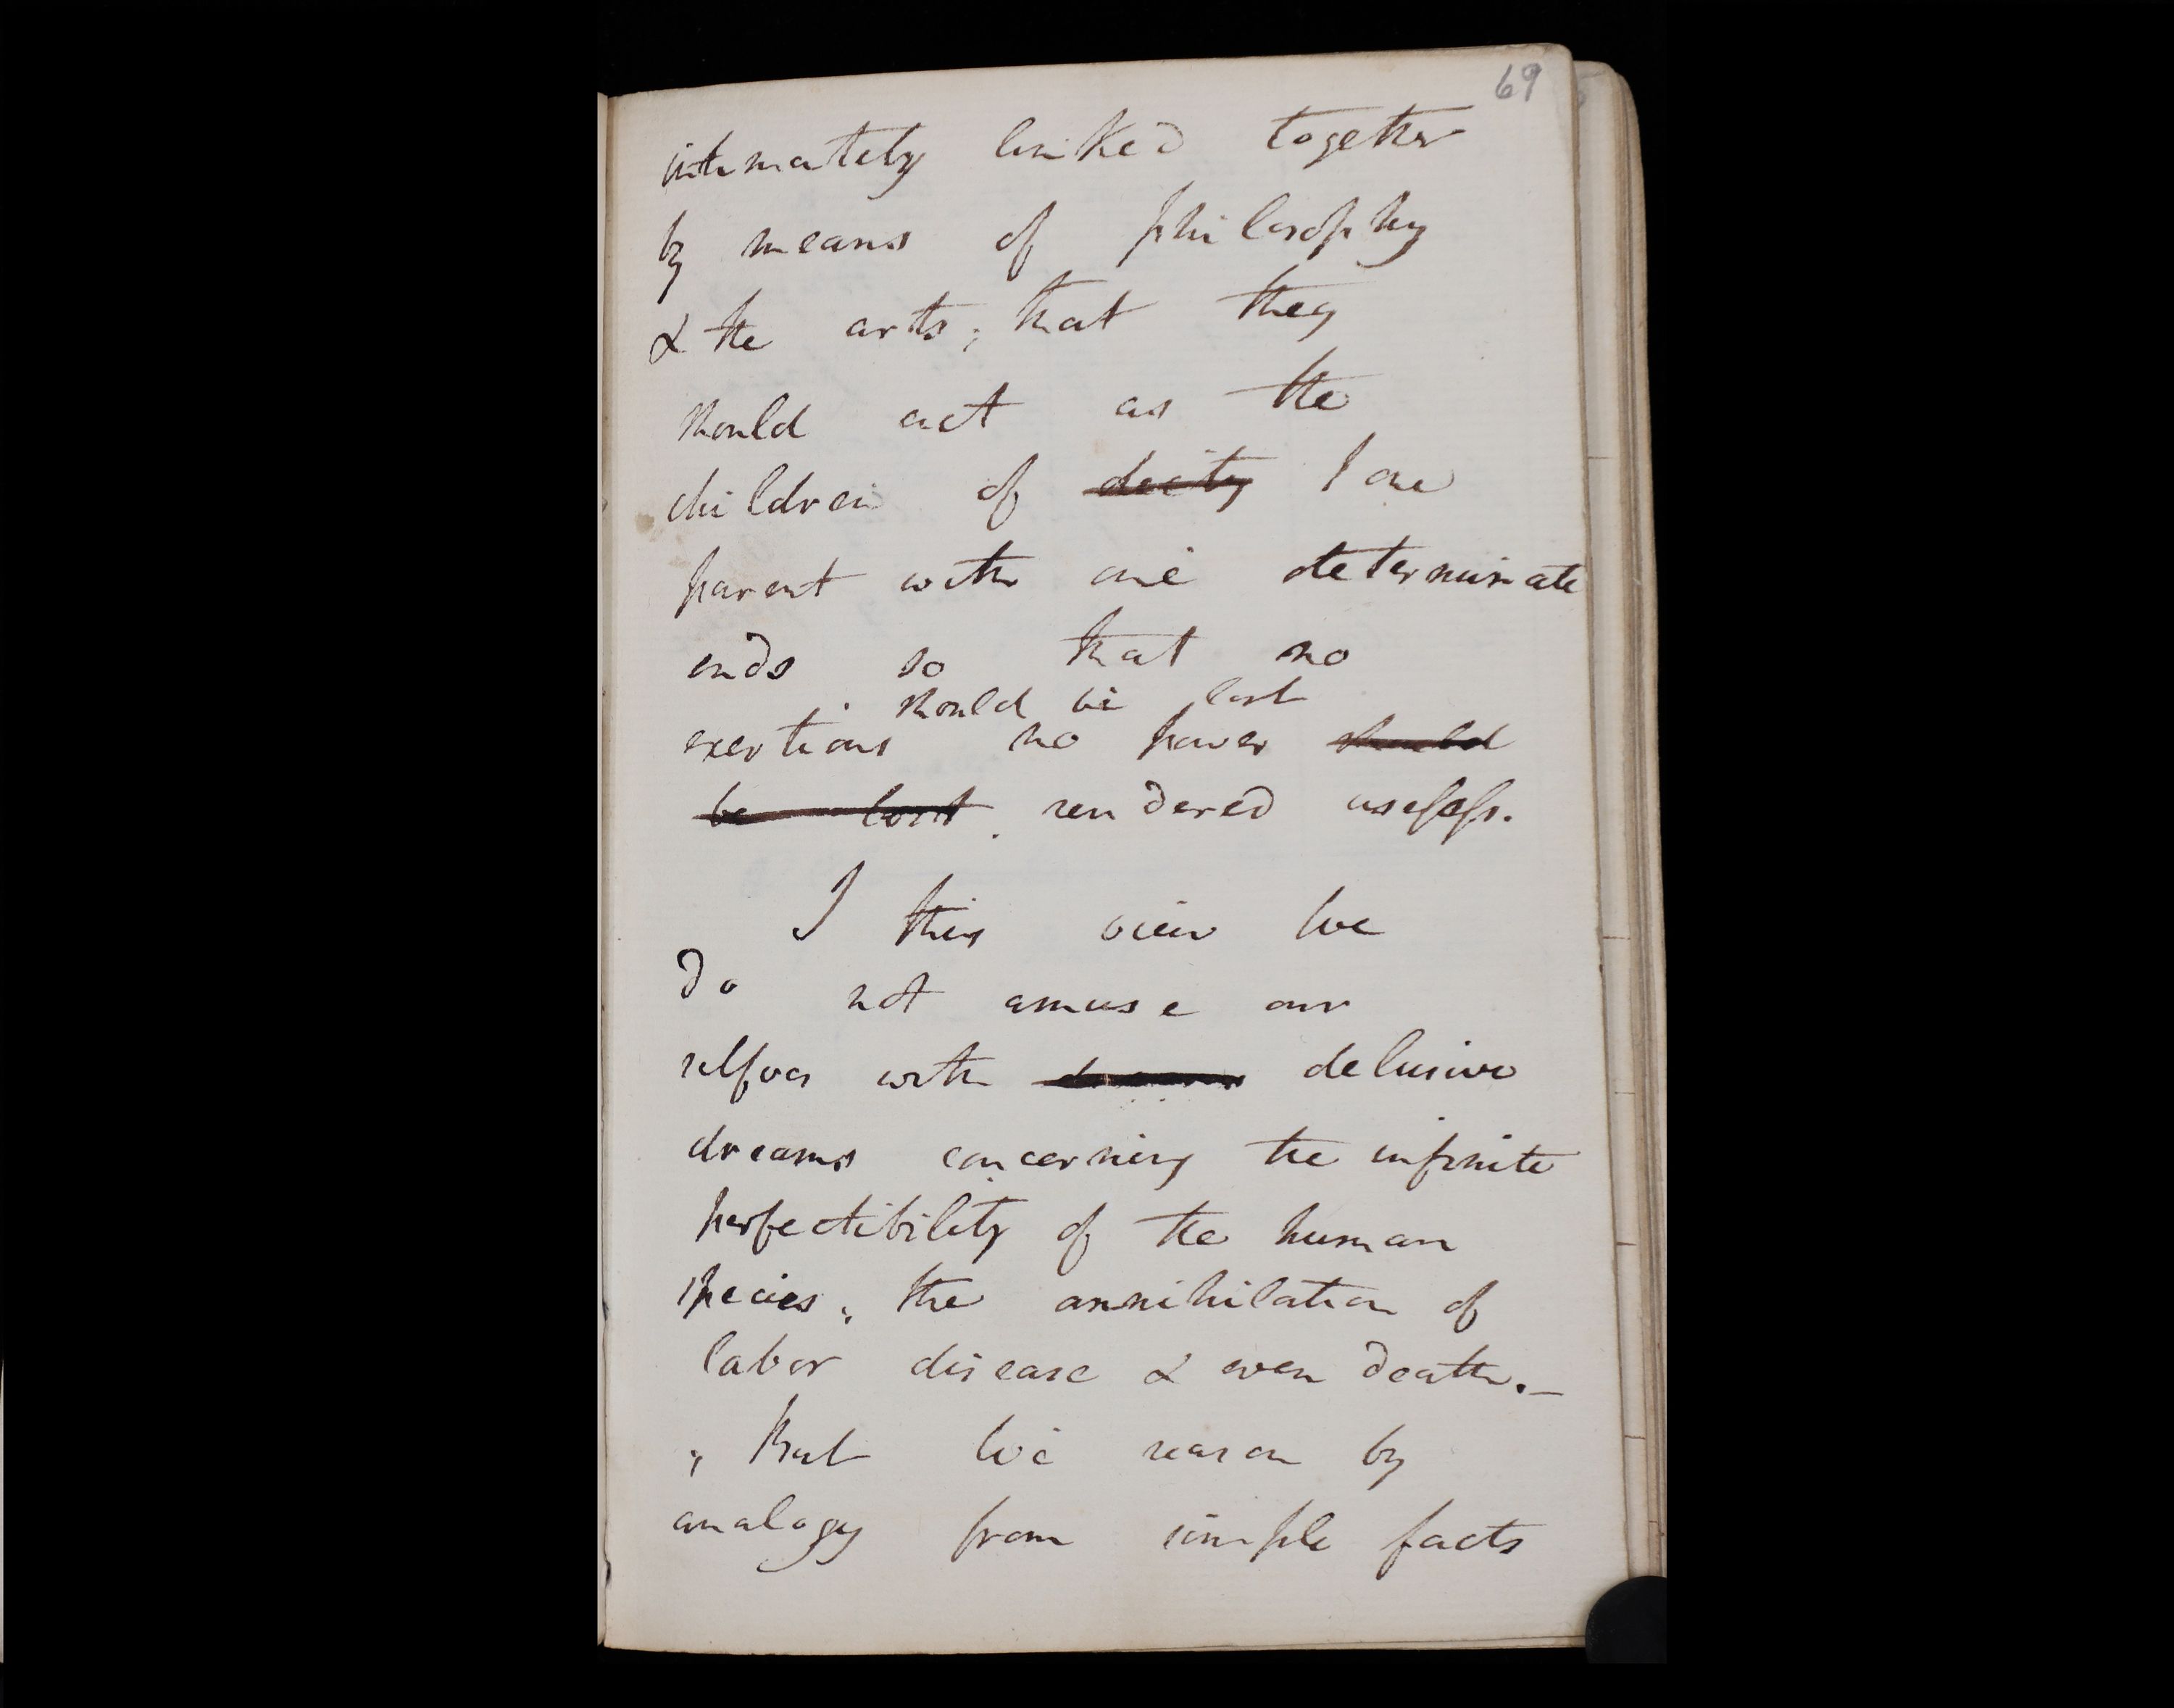 69
intimately linked together
by means of philosophy
& the arts; that they
should act as the
children of deity I one
parent with one determinate
ends so that no
should be lost
exertions no power should
be lost. rendered useless.
I this view we
do not amuse our
selves with dreams delusive
dreams concerning the infinite
perfectibility of the human
species, the annihilation of
labor disease & even death._
, But we reason by
analogy from simple facts